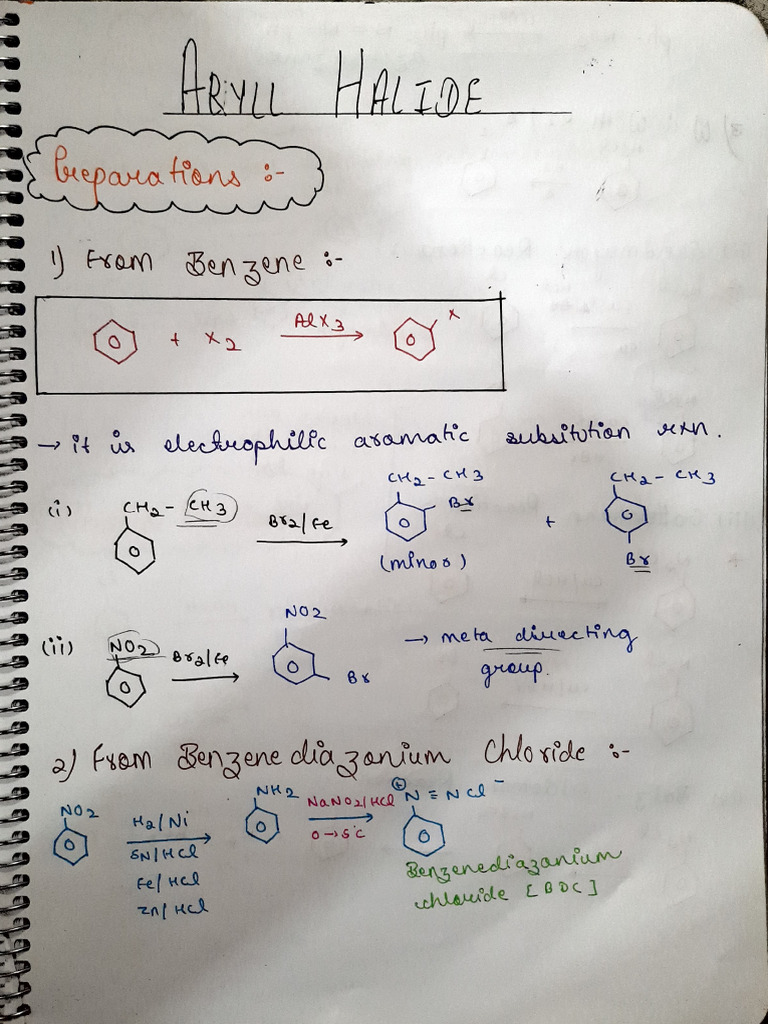 ARYLL HALIDE
Preparations :-
1) From Benzene :-
+ X2 AlX3 X
→ it is electrophilic aromatic subsitution rxn.
(i) CH2 - CH3 Br2/Fe CH2 - CH3 Br (minor) + CH2 - CH3 Br
(ii) NO2 Br2/Fe NO2 Br → meta directing
group.
2) From Benzenediazonium Chloride :-
NO2 H2/Ni NH2 NaNO2/HCl ⊕N ≡ N Cl⁻
SN/HCl 0→5°C
Fe/HCl
Zn/HCl
Benzenediazonium
chloride [BDC]